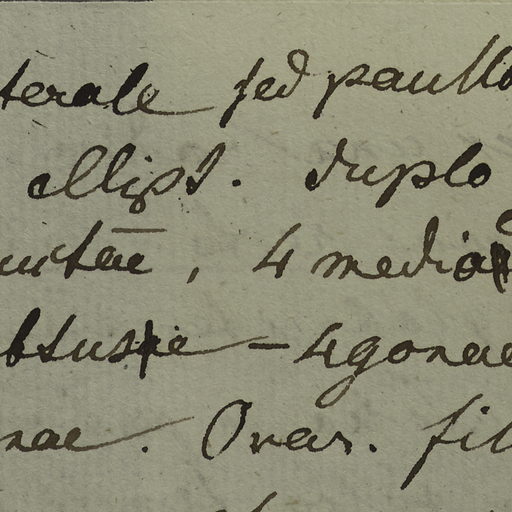 terale sed paullo
ellipt. duplo
unctae, 4 media
obtusie - 4gonae
nae. Ovar. fil